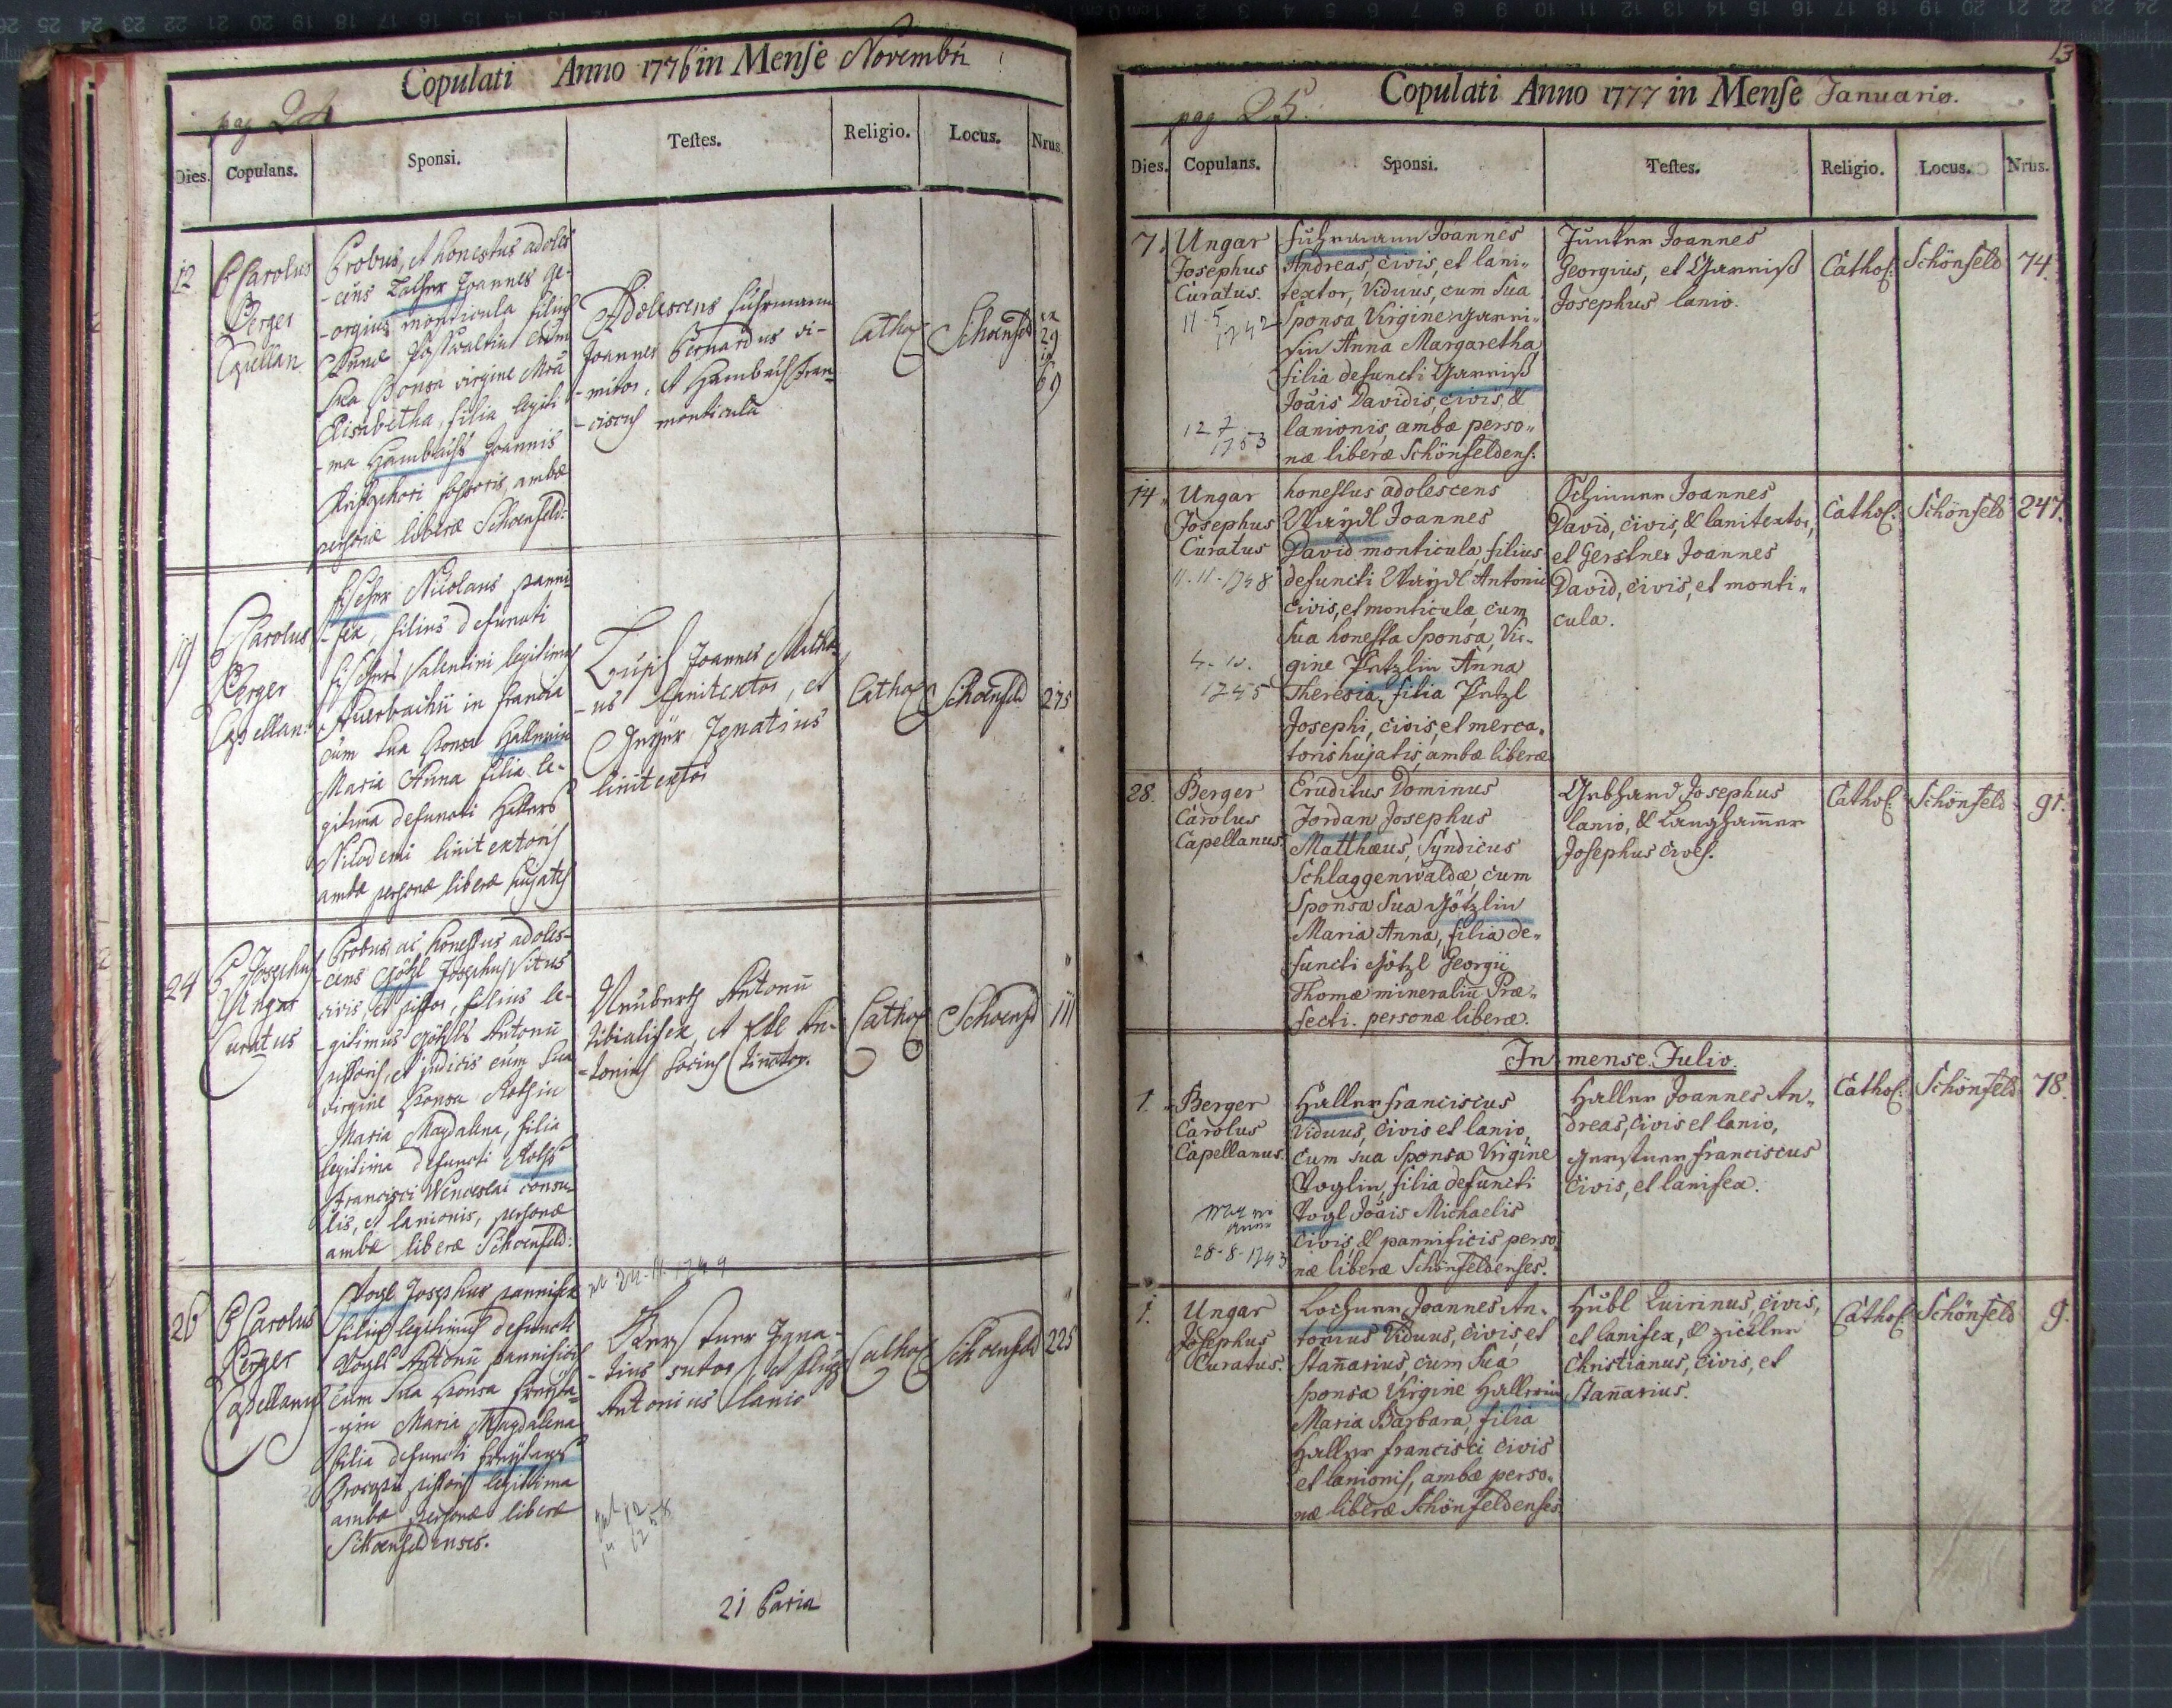 Copulati Anno 1776 in Mense Novembri
pag 24
Dies. Copulans. Sponsi. Testes. Religio. Locus. Nrus.
12
P Carolus
Perger
Capellan
Probus, et honestus adoles
-cens Joannes Ge-
-orgius monticula filius
cum
sua sponsa virgine
Elisabetha, filia legiti
-ma Joannis
ambae
personae liberae Schoenfeld:
Adolescens Fuhrmann
Joannes Bernardus vi-
-mitor, et Hambüchl Fran-
-ciscus monticula
Cathol
Schoenfeld
29
69
19
P Carolus
Perger
Capellan:
Fischer Nicolaus panni-
-fex, filius defuncti
Fischers Valentini legitimus
Auerbachii in
cum sua sponsa Hallerin
Maria Anna filia le-
gitima defuncti Hallers
Nicodemi linitextoris
ambae personae liberae hujates
Joannes Mathae
-us linitextor, et
Geÿer Ignatius
linitextor
Cathol
Schoenfeld
275
24
P Josephus
Ungar
Curatus
Probus, ac honestus adoles-
cens Josephus Vitus
civis, et pistor, filius le-
-gitimus Antonii
pistoris, et judicis cum sua
virgine sponsa
Maria Magdalena, filia
legitima defuncti
Francisci Wenceslai consu-
lis, et lanionis, personae
ambae liberae Schoenfeld:
Neüberth Antonii
tibialifex, et An-
-tonius socius
Cathol
Schoenfd
111
26
P Carolus
Perger
Capellanus
Vogl Josephus pannifex
filius legitimus defuncti
Vogls Antonii pannificis
cum sua sponsa Freÿta-
-gin Maria Magdalena
filia defuncti Freÿtags
pistoris legittima
ambae personae liberae
Schoenfeldenses.
24-11-1749
Gerstner Igna-
-tius sutor, et
Antonius lanio
Cathol
Schoenfeld
225
12
1758
21 Paria
13
Copulati Anno 1777 in Mense Januario.
pag 25.
Dies. Copulans. Sponsi. Testes. Religio. Locus. Nrus.
7.
Ungar
Josephus
Curatus.
11-5
1742
12 7
1753
Fuhrmann Joannes
Andreas, civis, et lani-
textor, Viduus, cum Sua
Sponsa Virgine Garni-
sin Anna Margaretha
filia defuncti Garniß
Joais Davidis, civis, &
lanionis, ambae perso-
nae liberae Schönfeldens:
Junker Joannes
Georgius, et Garniß
Josephus lanio.
Cathol:
Schönfeld
74.
14.
Ungar
Josephus
Curatus
11-11-1748
4-10.
1755
honestus adolescens
Waÿdl Joannes
David monticula, filius
defuncti Waÿdl Antonii
civis, et monticulae, cum
Sua honesta Sponsa, Vir-
gine Pretzlin Anna
Theresia, filia Pretzl
Josephi, civis, et merca-
toris hujatis, ambae liberae
Schirmer Joannes
David, civis, & lanitextor,
et Gerstner Joannes
David, civis, et monti-
cula.
Cathol:
Schönfeld
247.
28.
Berger
Carolus
Capellanus.
Eruditus Dominus
Jordan Josephus
Matthaeus, Syndicus
Schlaggenwaldae, cum
Sponsa Sua Götzlin
Maria Anna, filia de-
functi Götzl Georgii
Thomae mineraliu Prae-
fecti. personae liberae.
Gebhard Josephus
lanio, & Langhamer
Josephus cives.
Cathol:
Schönfeld
91.
In mense Julio.
1.
Berger
Carolus
Capellanus.
28-8-1743
Haller Franciscus
Viduus, civis et lanio,
cum sua Sponsa Virgine
Voglin, filia defuncti
Vogl Joais Michaelis
civis, & pannificis perso-
nae liberae Schönfeldenses.
Haller Joannes An-
dreas, civis et lanio,
Gerstner Franciscus
civis, et lanifex.
Cathol:
Schönfeld
78.
1.
Ungar
Josephus
Curatus.
Lochner Joannes An-
tonius Viduus, civis, et
Stanarius, cum Sua
Sponsa Virgine Hallerin
Maria Barbara, filia
Haller Francisci civis
et lanionis, ambae perso-
nae liberae Schönfeldenses.
Hübl Quirinus, civis,
et lanifex, & Zickler
Christianus, civis, et
Stanarius.
Cathol:
Schönfeld
9.